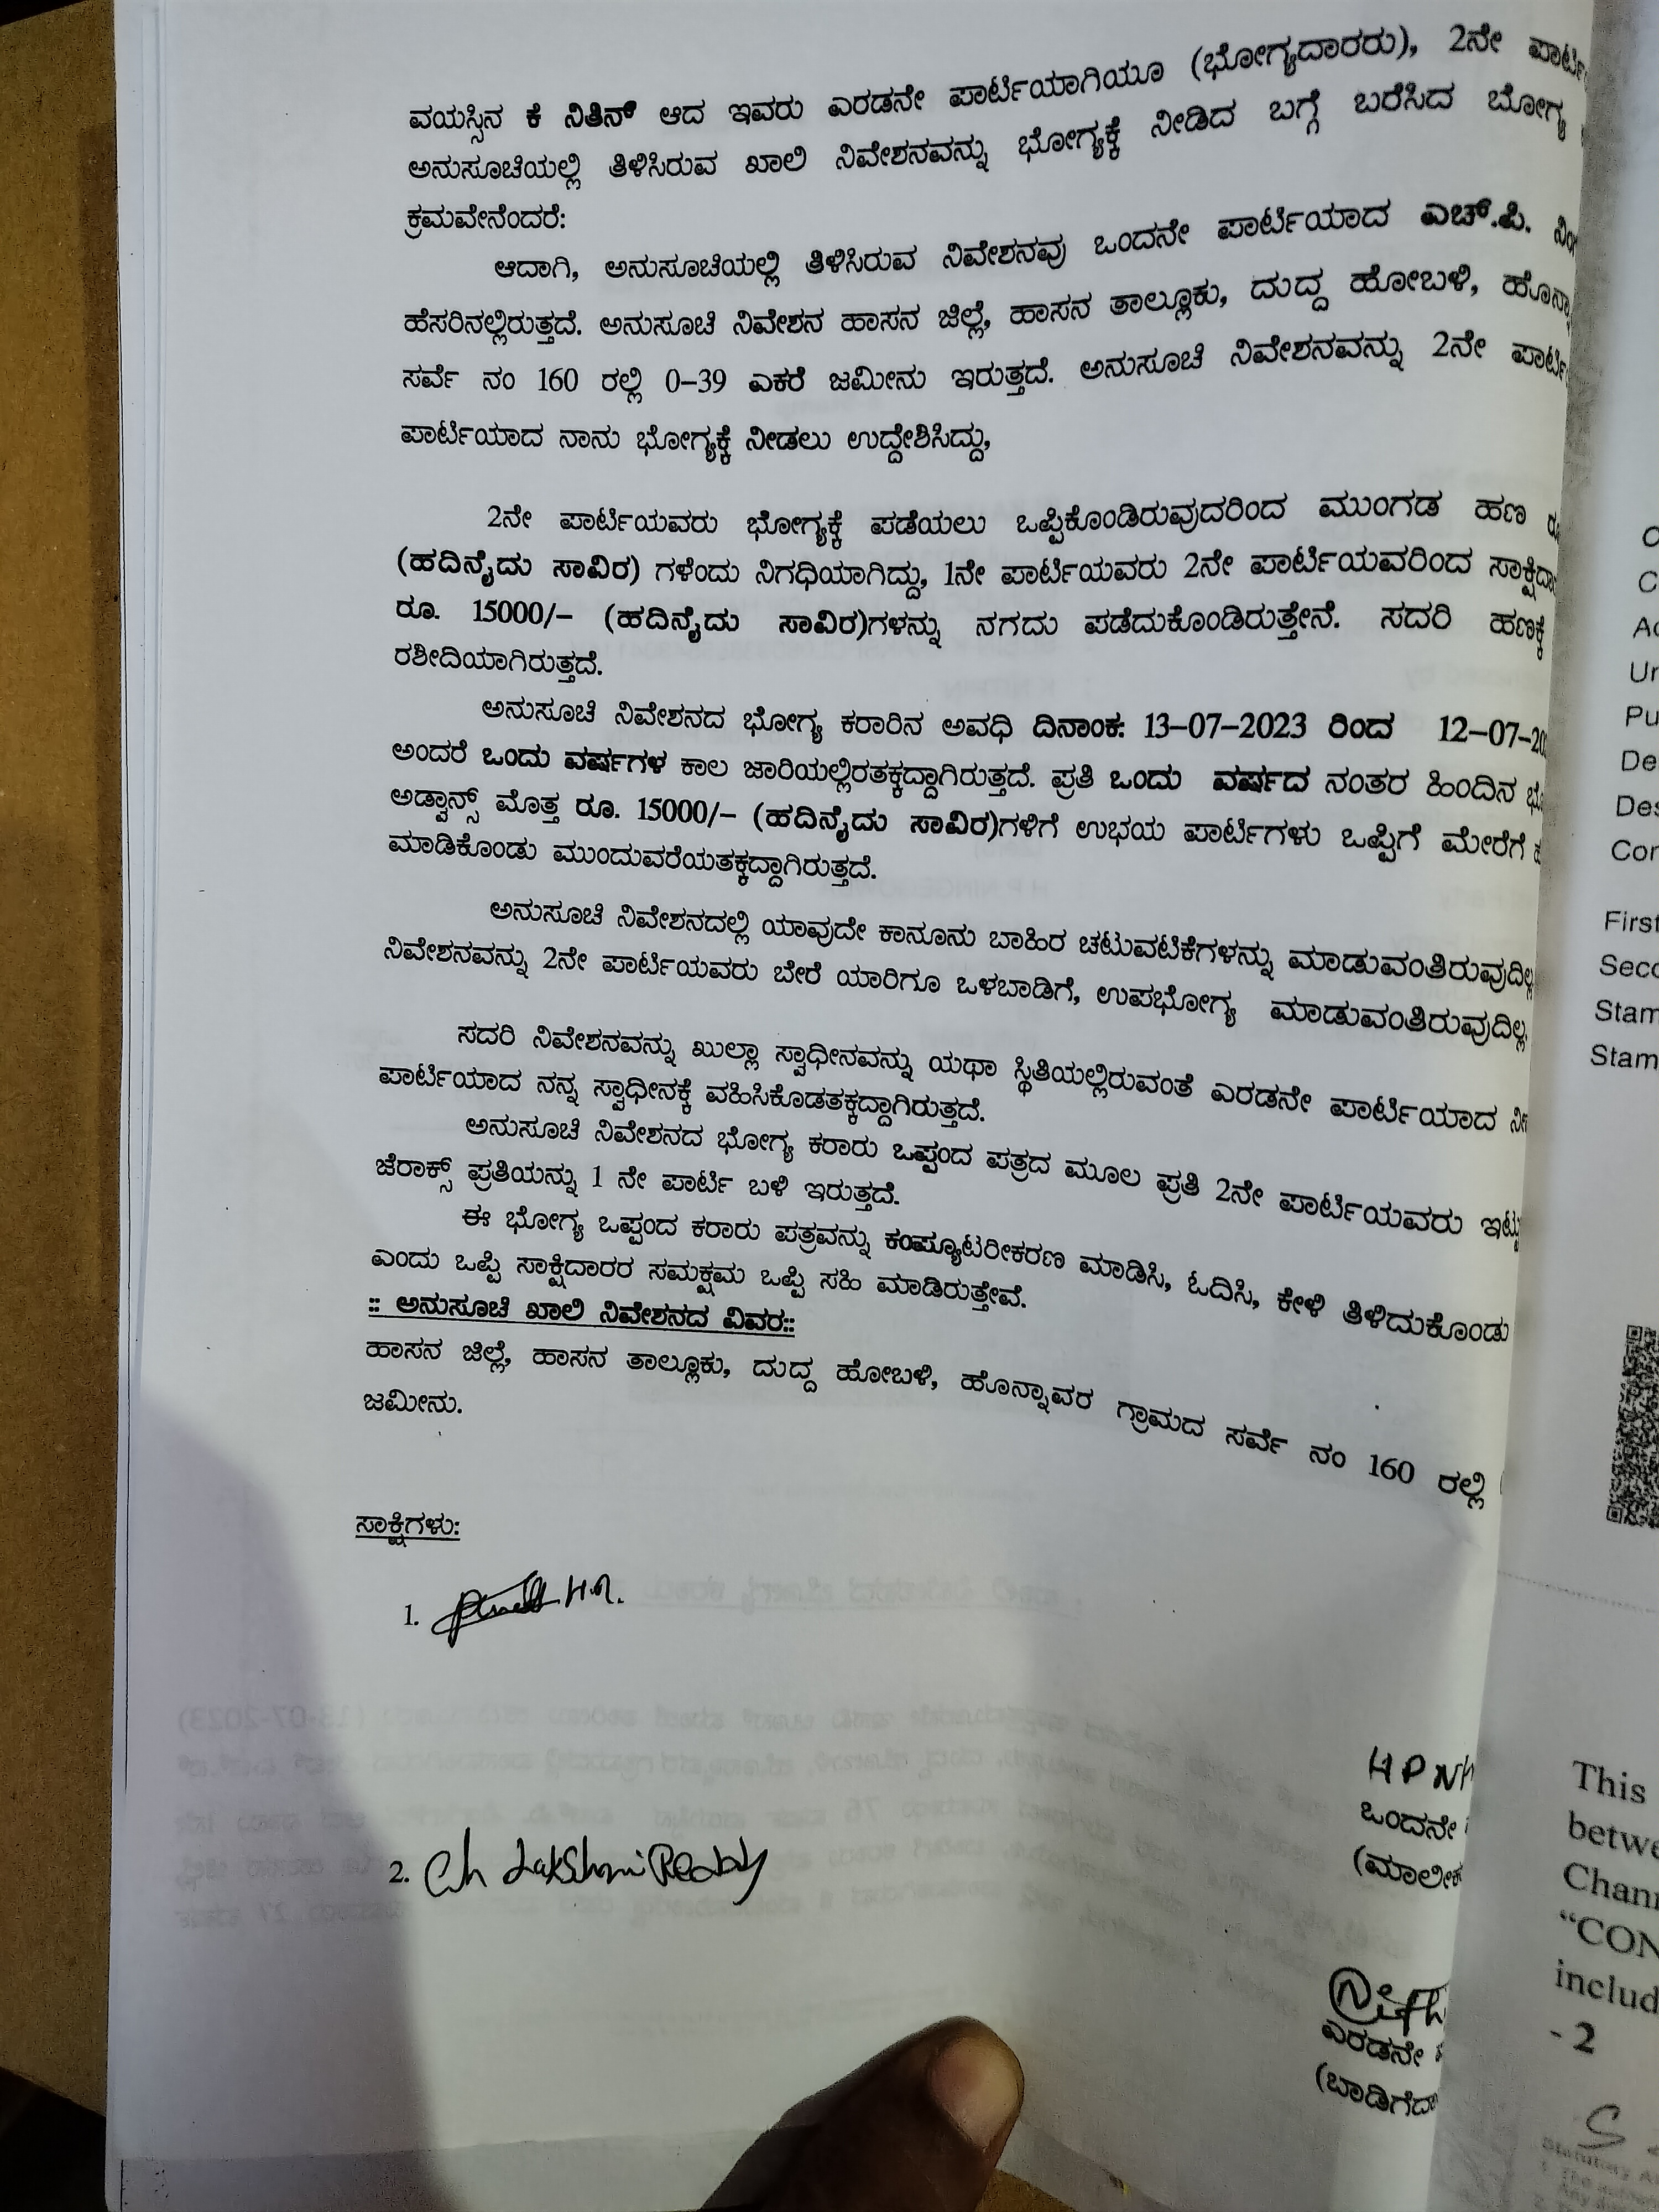 ವಯಸ್ಸಿನ ಕೆ ನಿತಿನ್ ಆದ ಇವರು ಎರಡನೇ ಪಾರ್ಟಿಯಾಗಿಯೂ (ಭೋಗ್ಯದಾರರು), 2ನೇ
ಅನುಸೂಚಿಯಲ್ಲಿ ತಿಳಿಸಿರುವ ಖಾಲಿ ನಿವೇಶನವನ್ನು ಭೋಗ್ಯಕ್ಕೆ ನೀಡಿದ ಬಗ್ಗೆ ಬರೆಸಿದ ಬೋಗ್ಯ
ಕ್ರಮವೇನೆಂದರೆ:
ಆದಾಗಿ, ಅನುಸೂಚಿಯಲ್ಲಿ ತಿಳಿಸಿರುವ ನಿವೇಶನವು ಒಂದನೇ ಪಾರ್ಟಿಯಾದ ಎಚ್.ಪಿ.
ಹೆಸರಿನಲ್ಲಿರುತ್ತದೆ. ಅನುಸೂಚಿ ನಿವೇಶನ ಹಾಸನ ಜಿಲ್ಲೆ, ಹಾಸನ ತಾಲ್ಲೂಕು, ದುದ್ದ ಹೋಬಳಿ,
ಸರ್ವೆ ನಂ 160 ರಲ್ಲಿ 0–39 ಎಕರೆ ಜಮೀನು ಇರುತ್ತದೆ. ಅನುಸೂಚಿ ನಿವೇಶನವನ್ನು 2ನೇ
ಪಾರ್ಟಿಯಾದ ನಾನು ಭೋಗ್ಯಕ್ಕೆ ನೀಡಲು ಉದ್ದೇಶಿಸಿದ್ದು,
2ನೇ ಪಾರ್ಟಿಯವರು ಭೋಗ್ಯಕ್ಕೆ ಪಡೆಯಲು ಒಪ್ಪಿಕೊಂಡಿರುವುದರಿಂದ ಮುಂಗಡ ಹಣ
(ಹದಿನೈದು ಸಾವಿರ) ಗಳೆಂದು ನಿಗಧಿಯಾಗಿದ್ದು, 1ನೇ ಪಾರ್ಟಿಯವರು 2ನೇ ಪಾರ್ಟಿಯವರಿಂದ
ರೂ. 15000/– (ಹದಿನೈದು ಸಾವಿರ)ಗಳನ್ನು ನಗದು ಪಡೆದುಕೊಂಡಿರುತ್ತೇನೆ. ಸದರಿ ಹಣಕ್ಕೆ
ರಶೀದಿಯಾಗಿರುತ್ತದೆ.
ಅನುಸೂಚಿ ನಿವೇಶನದ ಭೋಗ್ಯ ಕರಾರಿನ ಅವಧಿ ದಿನಾಂಕ: 13–07–2023 ರಿಂದ 12–07–20
ಅಂದರೆ ಒಂದು ವರ್ಷಗಳ ಕಾಲ ಜಾರಿಯಲ್ಲಿರತಕ್ಕದ್ದಾಗಿರುತ್ತದೆ. ಪ್ರತಿ ಒಂದು ವರ್ಷದ ನಂತರ ಹಿಂದಿನ
ಅಡ್ವಾನ್ಸ್ ಮೊತ್ತ ರೂ. 15000/– (ಹದಿನೈದು ಸಾವಿರ)ಗಳಿಗೆ ಉಭಯ ಪಾರ್ಟಿಗಳು ಒಪ್ಪಿಗೆ ಮೇರೆಗೆ
ಮಾಡಿಕೊಂಡು ಮುಂದುವರೆಯತಕ್ಕದ್ದಾಗಿರುತ್ತದೆ.
ಅನುಸೂಚಿ ನಿವೇಶನದಲ್ಲಿ ಯಾವುದೇ ಕಾನೂನು ಬಾಹಿರ ಚಟುವಟಿಕೆಗಳನ್ನು ಮಾಡುವಂತಿರುವುದಿಲ್ಲ
ನಿವೇಶನವನ್ನು 2ನೇ ಪಾರ್ಟಿಯವರು ಬೇರೆ ಯಾರಿಗೂ ಒಳಬಾಡಿಗೆ, ಉಪಭೋಗ್ಯ ಮಾಡುವಂತಿರುವುದಿಲ್ಲ.
ಸದರಿ ನಿವೇಶನವನ್ನು ಖುಲ್ಲಾ ಸ್ವಾಧೀನವನ್ನು ಯಥಾ ಸ್ಥಿತಿಯಲ್ಲಿರುವಂತೆ ಎರಡನೇ ಪಾರ್ಟಿಯಾದ
ಪಾರ್ಟಿಯಾದ ನನ್ನ ಸ್ವಾಧೀನಕ್ಕೆ ವಹಿಸಿಕೊಡತಕ್ಕದ್ದಾಗಿರುತ್ತದೆ.
ಅನುಸೂಚಿ ನಿವೇಶನದ ಭೋಗ್ಯ ಕರಾರು ಒಪ್ಪಂದ ಪತ್ರದ ಮೂಲ ಪ್ರತಿ 2ನೇ ಪಾರ್ಟಿಯವರು
ಜೆರಾಕ್ಸ್ ಪ್ರತಿಯನ್ನು 1 ನೇ ಪಾರ್ಟಿ ಬಳಿ ಇರುತ್ತದೆ.
ಈ ಭೋಗ್ಯ ಒಪ್ಪಂದ ಕರಾರು ಪತ್ರವನ್ನು ಕಂಪ್ಯೂಟರೀಕರಣ ಮಾಡಿಸಿ, ಓದಿಸಿ, ಕೇಳಿ ತಿಳಿದುಕೊಂಡು
ಎಂದು ಒಪ್ಪಿ ಸಾಕ್ಷಿದಾರರ ಸಮಕ್ಷಮ ಒಪ್ಪಿ ಸಹಿ ಮಾಡಿರುತ್ತೇವೆ.
:: ಅನುಸೂಚಿ ಖಾಲಿ ನಿವೇಶನದ ವಿವರ::
ಹಾಸನ ಜಿಲ್ಲೆ, ಹಾಸನ ತಾಲ್ಲೂಕು, ದುದ್ದ ಹೋಬಳಿ, ಹೊನ್ನಾವರ ಗ್ರಾಮದ ಸರ್ವೆ ನಂ 160 ರಲ್ಲಿ
ಜಮೀನು.
ಸಾಕ್ಷಿಗಳು:
1. H.N.
2. Ch Lakshmi Reddy
H P
ಒಂದನೇ
(ಮಾಲೀಕ
ಎರಡನೇ
First
Stam
Stam
This
betwe
Chann
"CON
includ
- 2